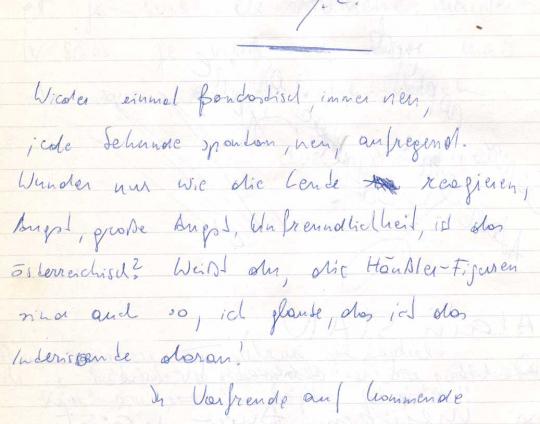 Wieder einmal fantastisch, immer neu,
jede Sekunde spontan, neu, aufregend.
Wunder nur wie die Leute reagieren,
Angst, große Angst, Unfreundlichkeit, ist das
österreichisch? Weißt du, die Häußler-Figuren
sind auch so, ich glaube, das ist das
Interissante daran!
In Vorfreude auf kommende